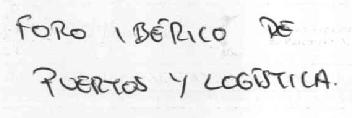 FORO IBÉRICO DE
PUERTOS Y LOGÍSTICA.